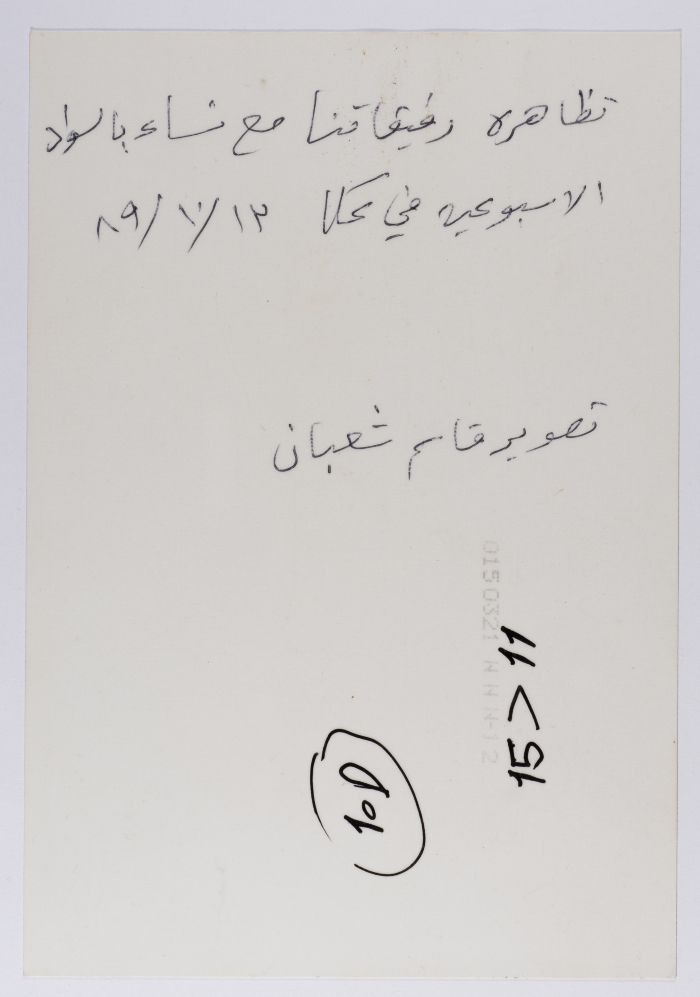 تظاهره رفيقاتنا مع نساء بالسواد
الاسبوعيه في عكا ١٣/١/٨٩
تصوير قاسم شعبان
0150321 N N N-12
15 > 11